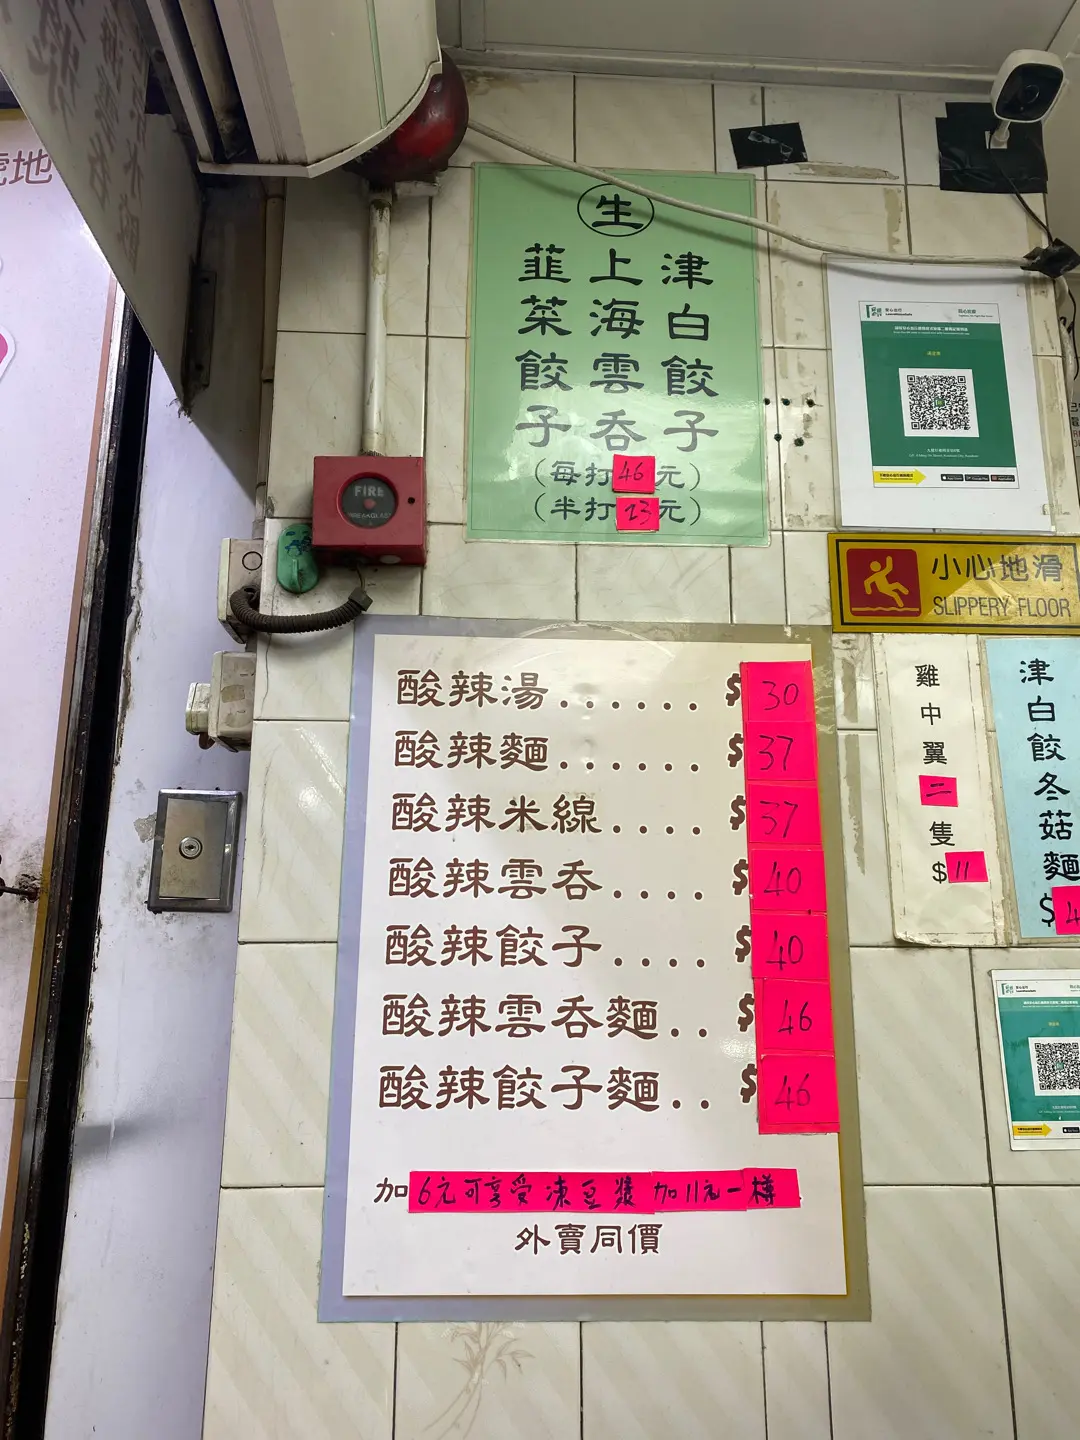 號地
生
津白餃子
上海雲吞
韮菜餃子
(每打46元)
(半打23元)
FIRE
BREAK GLASS
安心出行
LeaveHomeSafe
同心抗疫
小心地滑
SLIPPERY FLOOR
酸辣湯......$30
酸辣麵......$37
酸辣米線....$37
酸辣雲吞....$40
酸辣餃子....$40
酸辣雲吞麵..$46
酸辣餃子麵..$46
加6元可享受凍豆漿 加11元一樽
外賣同價
雞中翼二隻
$11
津白餃冬菇麵
$4